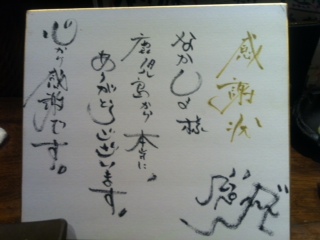 感謝状
なかしま様
鹿児島から本当に、
ありがとうございます。
心から感謝です。